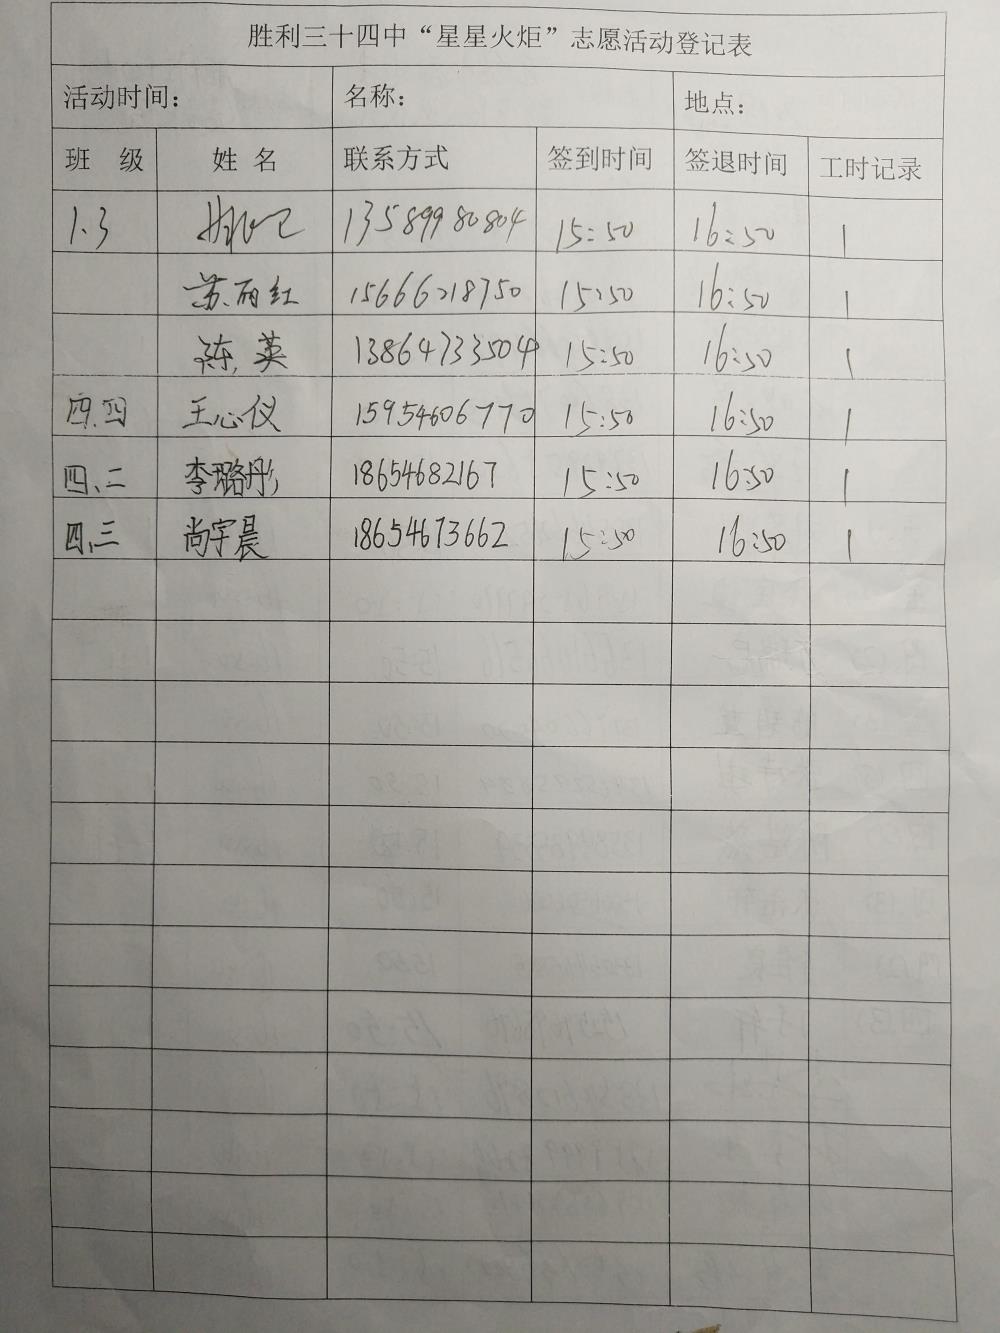 胜利三十四中“星星火炬”志愿活动登记表
活动时间： 名称： 地点：
班 级 姓 名 联系方式 签到时间 签退时间 工时记录
1.3 13589980804 15:50 16:50 1
苏丽红 15666218750 15:50 16:50 1
陈英 13864733504 15:50 16:50 1
四.四 王心仪 15954606770 15:50 16:50 1
四、二 李璐彤 18654682167 15:50 16:50 1
四、三 尚宇晨 18654673662 15:50 16:50 1